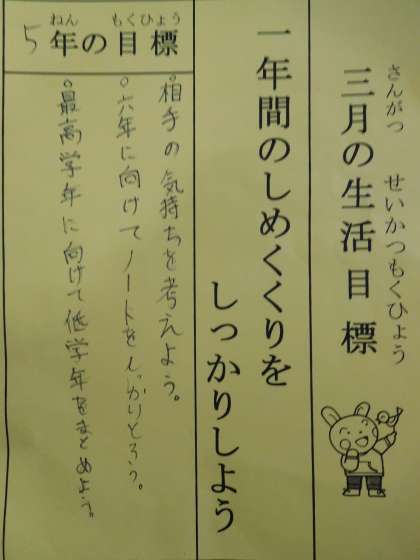 さんがつ せいかつもくひょう
三月の生活目標
一年間のしめくくりを
しっかりしよう
ねん もくひょう
5年の目標
。相手の気持ちを考えよう。
。六年に向けてノートをしっかりとろう。
。最高学年に向けて低学年をまとめよう。